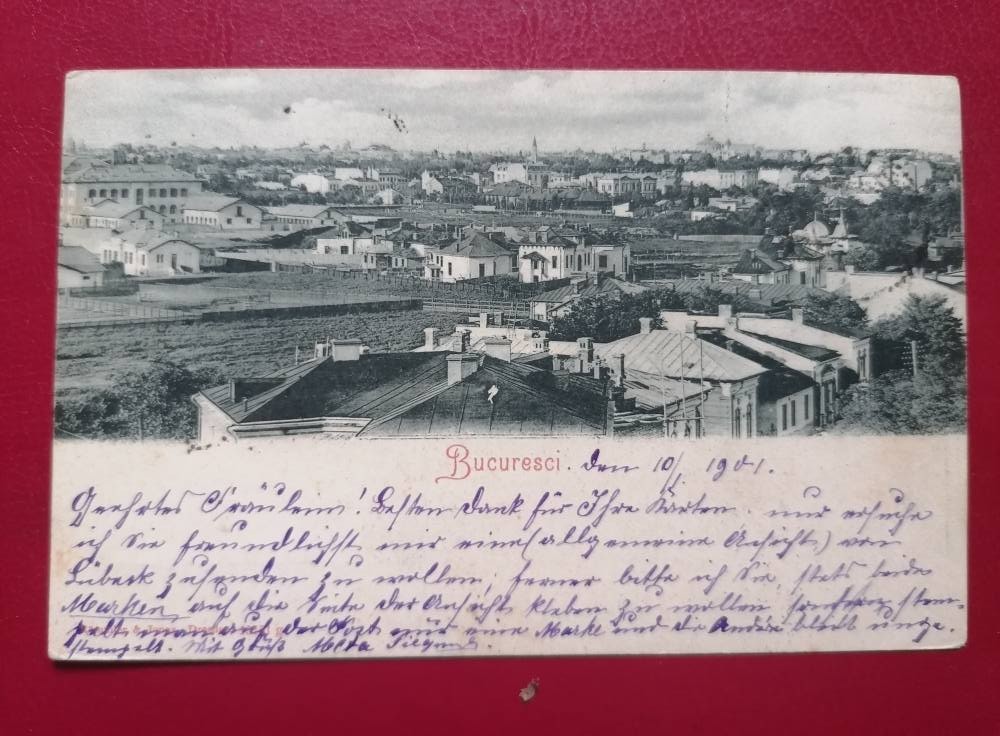 Bucuresci. den 10/I 1901.
Geehrtes Fräulein! Besten Dank für Ihre Karten. nur ersuche
ich Sie freundlichst mir eine (allgemeine Ansicht) von
Lübeck zusenden zu wollen, ferner bitte ich Sie, stets beide
Marken auf die Seite der Ansicht kleben zu wollen, sondern stem-
pelt man auf der Post nur eine Marke und die Andere bleibt unge-
stempelt. Mit Gruß